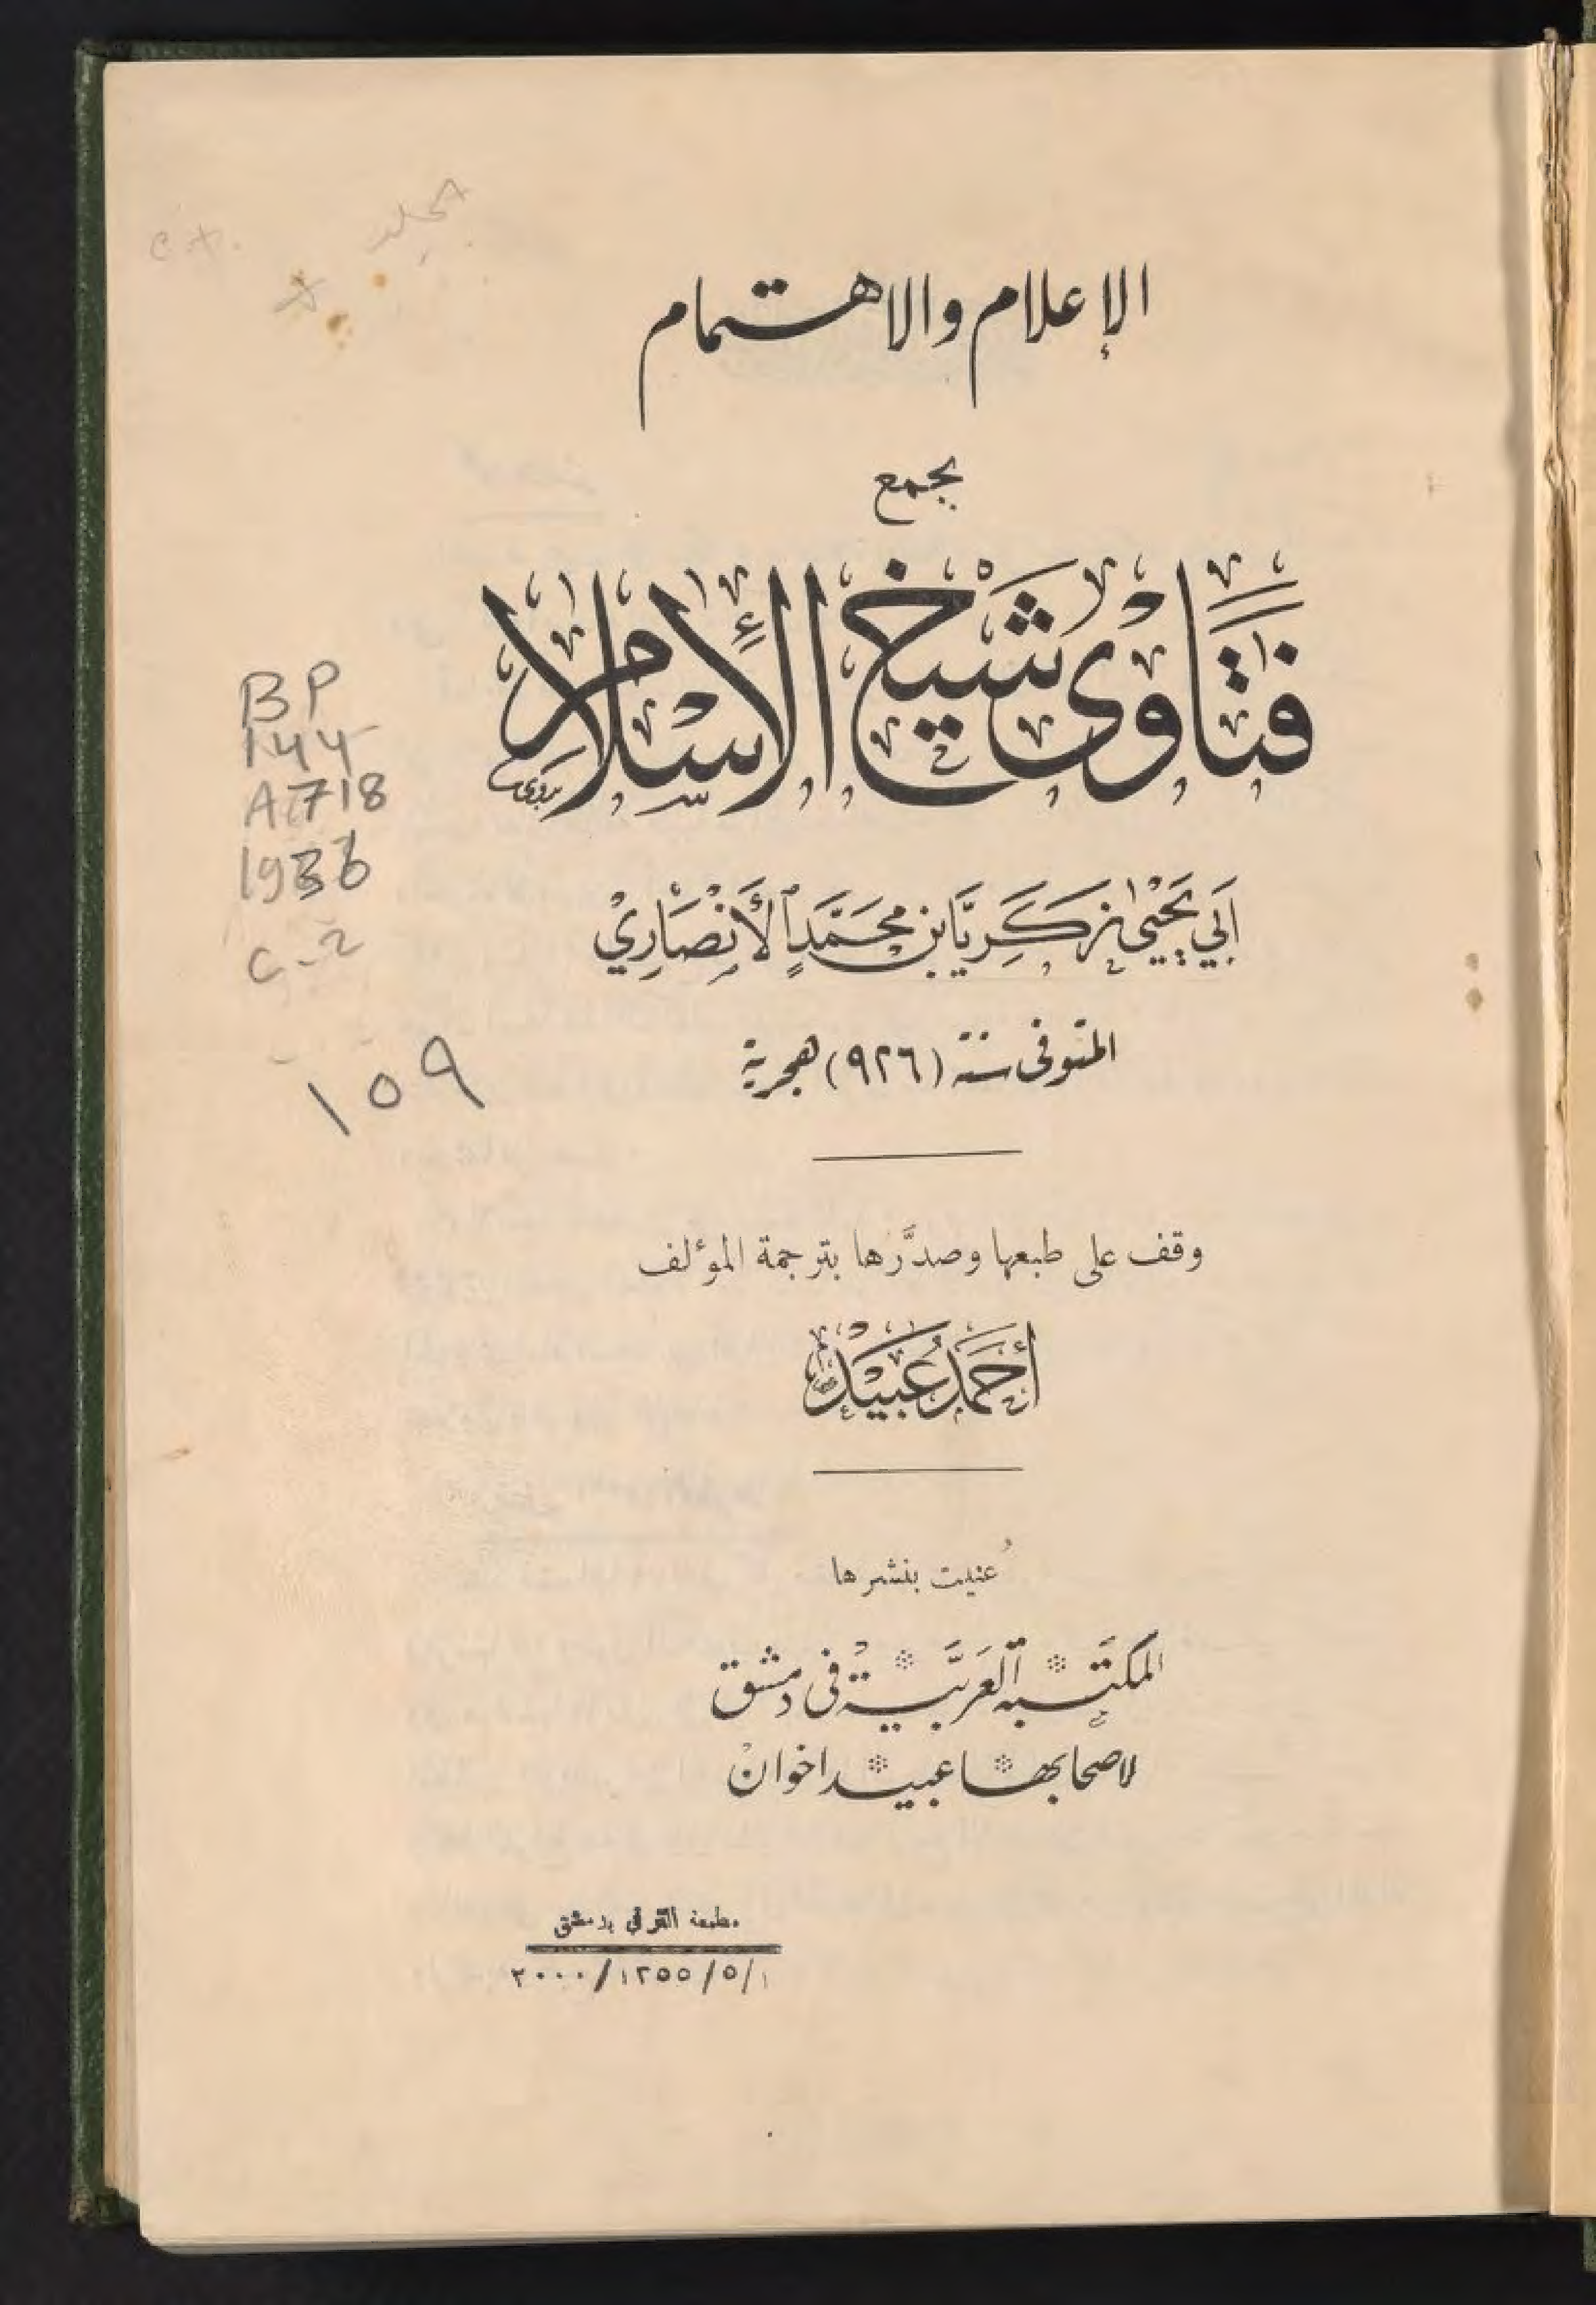 الإعلام والاهتمام
بجمع
فَتَاوَى شَيْخِ الْإِسْلَامِ
بدوي
أَبِي يَحْيَى زَكَرِيَّا بْنِ مُحَمَّدٍ الأَنْصَارِيِّ
المتوفى سنة (٩٢٦) هجرية
وقف على طبعها وصدَّرها بترجمة المؤلف
أَحْمَد عُبَيْد
عُنيت بنشرها
المكتبة العربيَّة في دمشق
لاصحابها عبيد اخوان
مطبعة الترقي بدمشق
٢٠٠٠/١٣٥٥/٥/١
BP
144
A718
1936
C-2
١٥٩